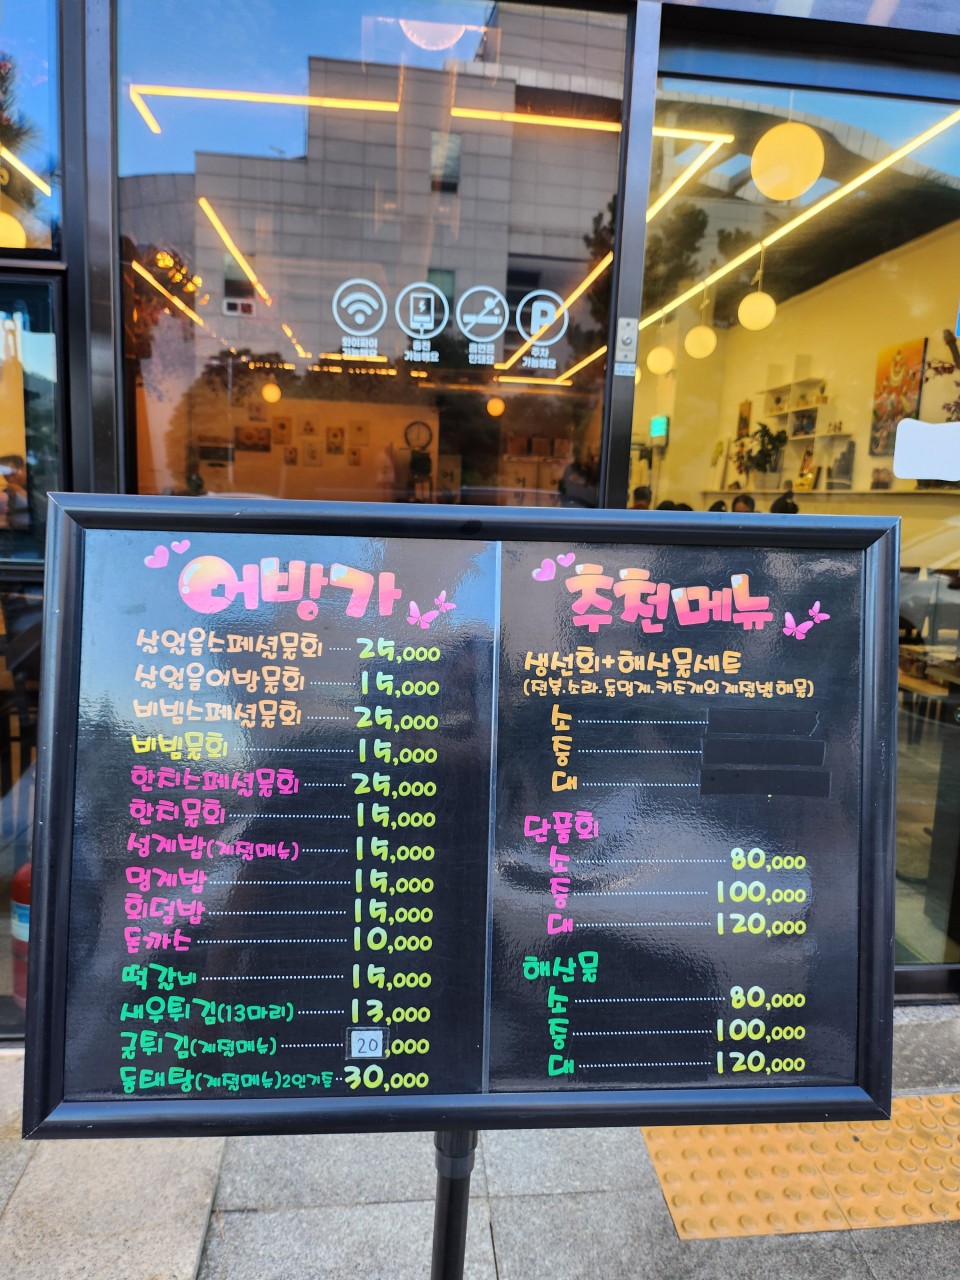 와이파이
가능해요
충전
가능해요
흡연은
안돼요
P
주차
가능해요
어방가
살얼음스페셜물회 25,000
살얼음어방물회 15,000
비빔스페셜물회 25,000
비빔물회 15,000
한치스페셜물회 25,000
한치물회 15,000
성게밥(계절메뉴) 15,000
멍게밥 15,000
회덮밥 15,000
돈까스 10,000
떡갈비 15,000
새우튀김(13마리) 13,000
굴튀김(계절메뉴) 20,000
동태탕(계절메뉴)2인기준 30,000
추천메뉴
생선회+해산물세트
(전복.소라.돌멍게.키조개외 계절별 해물)
소
중
대
단품회
소 80,000
중 100,000
대 120,000
해산물
소 80,000
중 100,000
대 120,000